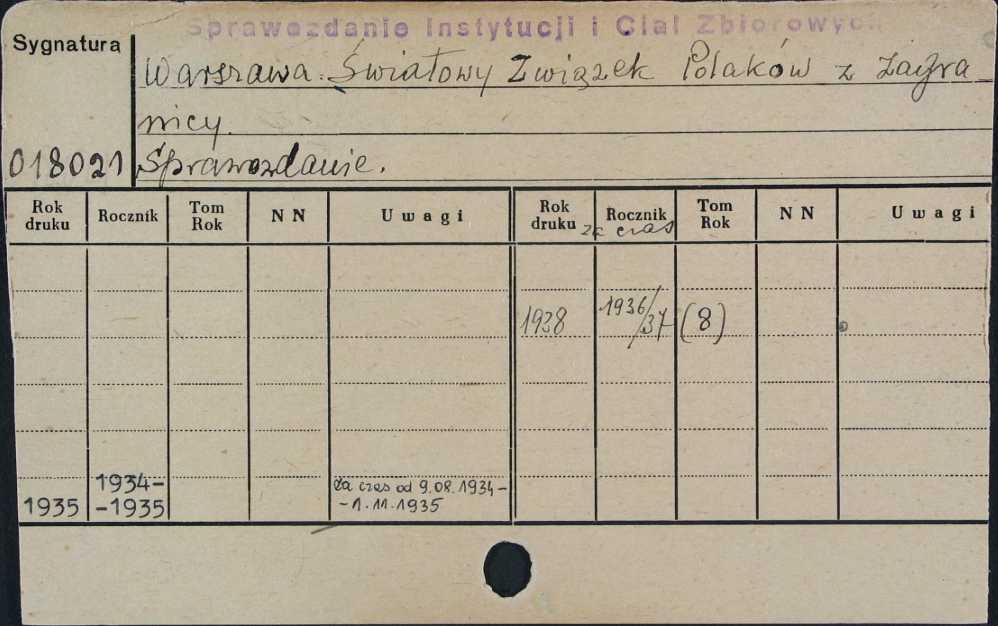 Sprawozdanie Instytucji i Ciał Zbiorowych
Sygnatura
Warszawa. Światowy Związek Polaków z Zagra
nicy.
018021 Sprawozdanie.
Rok druku Rocznik Tom Rok NN Uwagi Rok druku Rocznik Tom Rok NN Uwagi
za czas
1938 1936/37 (8)
1935 1934-
-1935 Za czas od 9.08.1934-
-1.11.1935